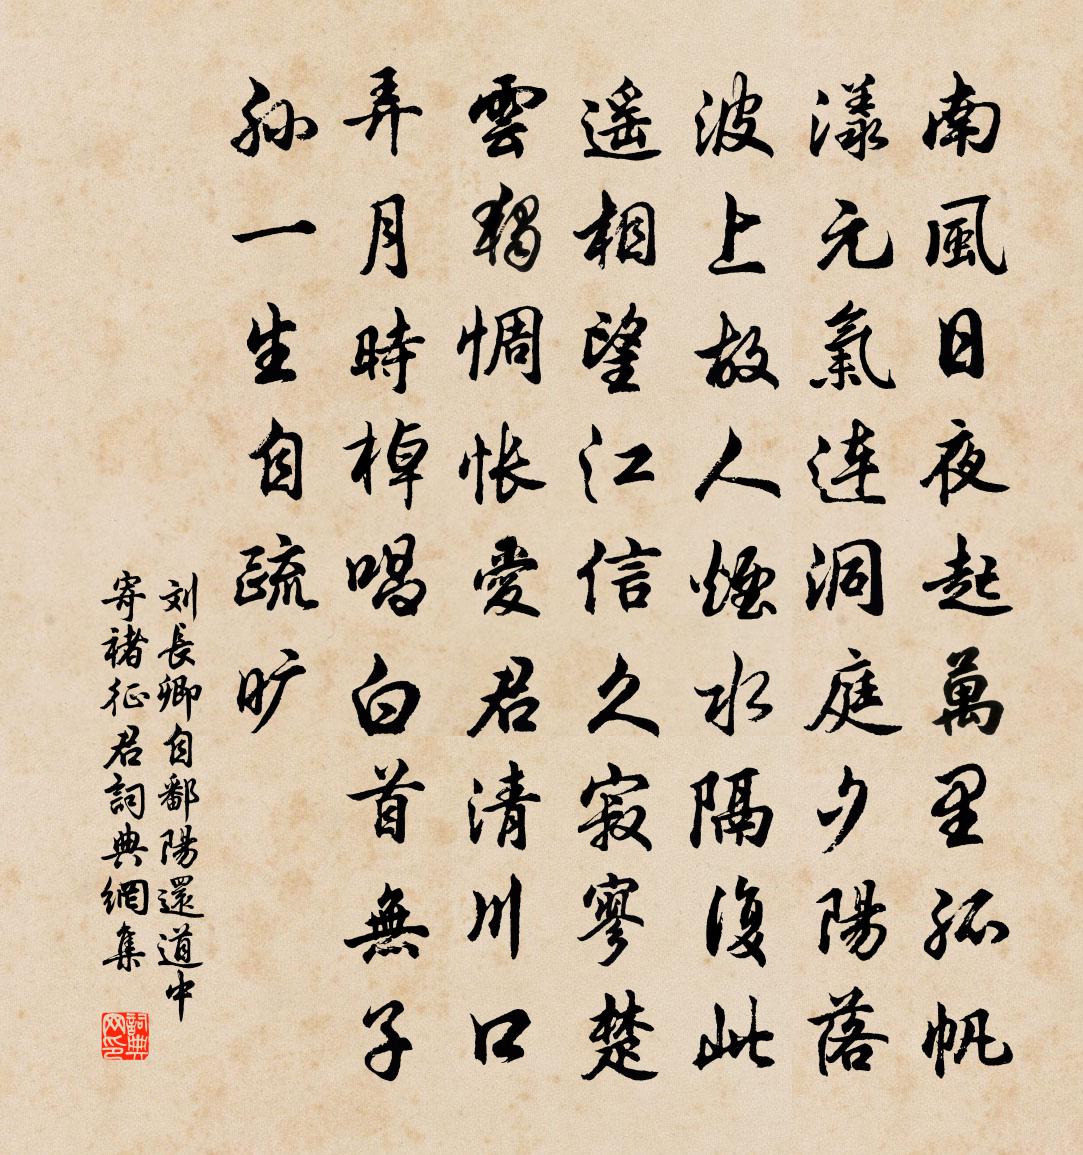 南風日夜起萬里孤帆
漾元氣連洞庭夕陽落
波上故人煙水隔復此
遥相望江信久寂寥楚
雲獨惆怅愛君清川口
弄月時棹唱白首無子
孫一生自疏旷
刘長卿自鄱陽還道中
寄褚征君詞典網集
詞典
网印